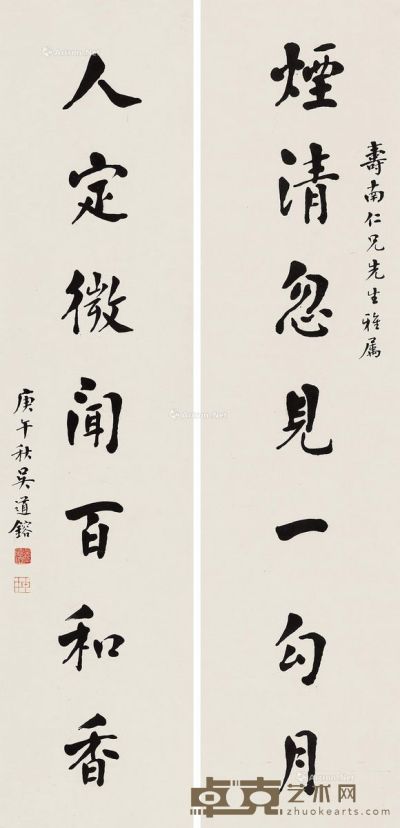 壽南仁兄先生雅属
煙清忽見一勾月
人定微闻百和香
庚午秋吴道鎔
卓克艺术网
zhuokearts.com